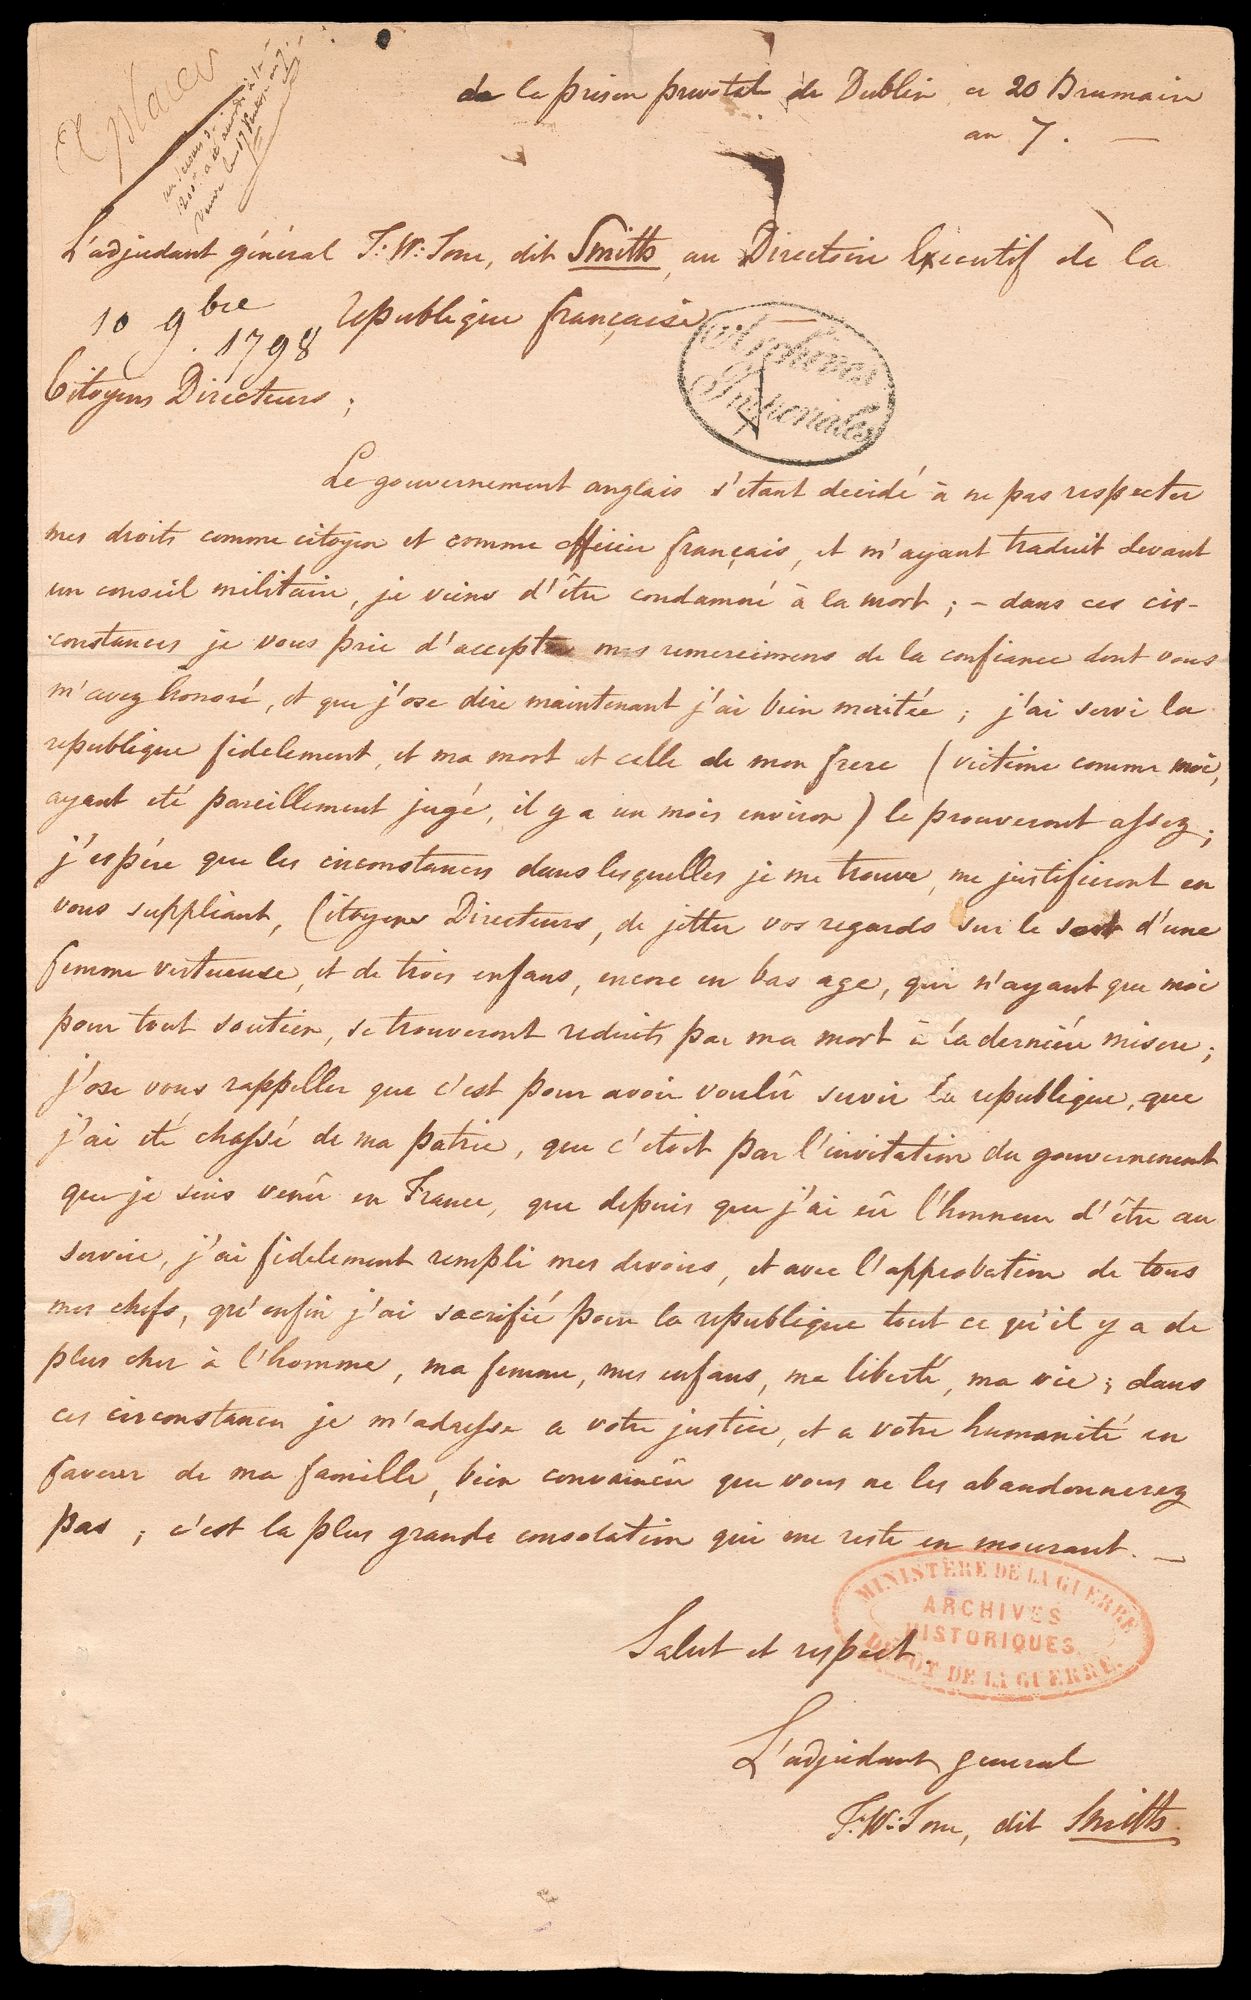 de la prison prevotale de Dublin ce 20 Brumaire
an 7. —
L'adjudant général T. W. Tone, dit Smith, au Directoire Executif de la
republique française —
10 9bre 1798
Archives Imperiales
Citoyens Directeurs;
Le gouvernement anglais s'etant decidé à ne pas respecter
mes droits comme citoyen et comme officier français, et m'ayant traduit devant
un conseil militaire, je viens d'être condamné à la mort; — dans ces cir-
constances je vous prie d'accepter mes remercimens de la confiance dont vous
m'avez honoré, et que j'ose dire maintenant j'ai bien meritée; j'ai servi la
republique fidelement, et ma mort et celle de mon frere (victime comme moi,
ayant eté pareillement jugé, il y a un mois environ) le prouveront assez;
j'espére que les circonstances dans lesquelles je me trouve, me justifieront en
vous suppliant, Citoyens Directeurs, de jetter vos regards sur le sort d'une
femme vertueuse, et de trois enfans, encore en bas age, qui n'ayant que moi
pour tout soutien, se trouveront reduits par ma mort à la derniére misere;
j'ose vous rappeller que c'est pour avoir voulû servir la republique, que
j'ai eté chassé de ma patrie, que c'etoit par l'invitation du gouvernement
que je suis venû en France, que depuis que j'ai eû l'honneur d'être au
service, j'ai fidelement rempli mes devoirs, et avec l'approbation de tous
mes chefs, qu'enfin j'ai sacrifié pour la republique tout ce qu'il y a de
plus cher à l'homme, ma femme, mes enfans, ma liberté, ma vie; dans
ces circonstances je m'adresse a votre justice, et a votre humanité en
faveur de ma famille, bien convaincû que vous ne les abandonnerez
pas; c'est la plus grande consolation qui me reste en mourant. —
MINISTÈRE DE LA GUERRE
ARCHIVES
HISTORIQUES
DÉPÔT DE LA GUERRE.
Salut et respect.
L'adjudant general
T. W. Tone, dit Smith.